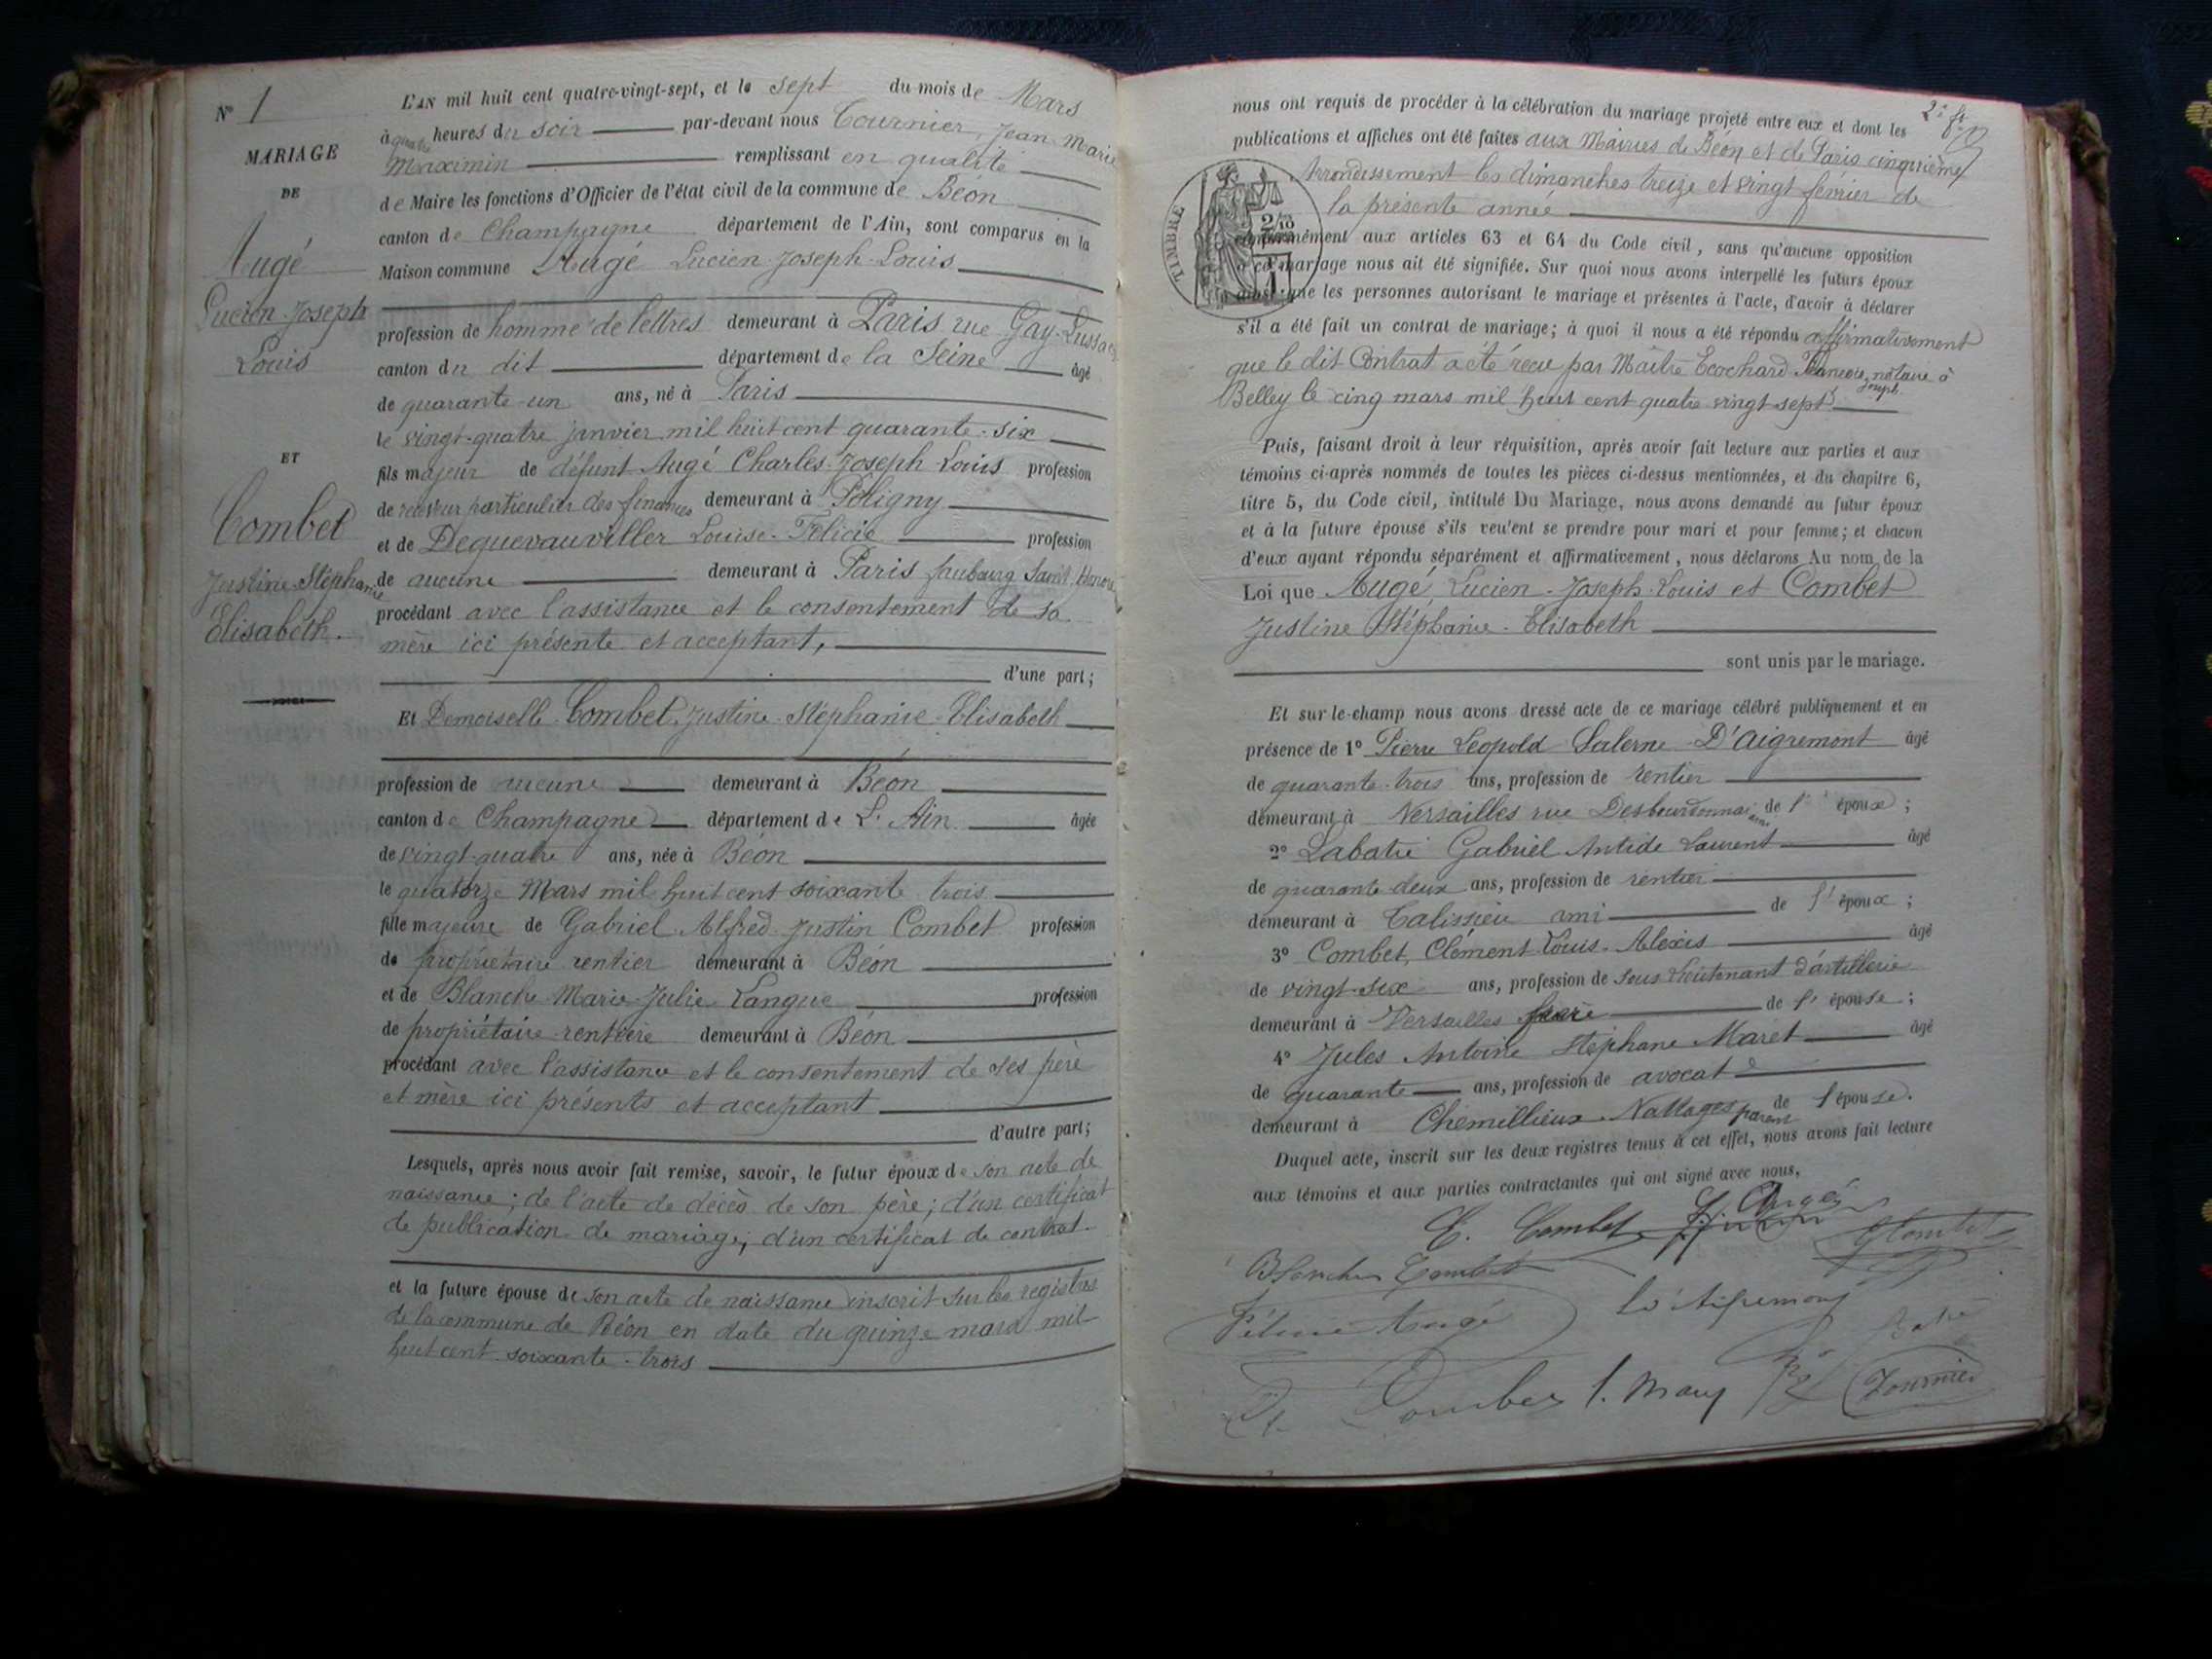 N° 1
MARIAGE
DE
Augé
Lucien-Joseph
Louis
ET
Combet
Justine-Stéphanie
Élisabeth.
L'AN mil huit cent quatre-vingt-sept, et le sept du mois de Mars
à quatre heures du soir par-devant nous Tournier, Jean-Marie
Maximin remplissant en qualité
de Maire les fonctions d'Officier de l'état civil de la commune de Béon
canton de Champagne département de l'Ain, sont comparus en la
Maison commune Augé Lucien-Joseph-Louis
profession de homme de lettres demeurant à Paris rue Gay-Lussac
canton du dit département de la Seine âgé
de quarante-un ans, né à Paris
le vingt-quatre janvier mil huit cent quarante-six
fils majeur de défunt Augé Charles-Joseph-Louis profession
de receveur particulier des finances demeurant à Poligny
et de Dequevauviller Louise-Félicie profession
de aucune demeurant à Paris faubourg Saint Honoré
procédant avec l'assistance et le consentement de sa
mère ici présente et acceptant,
d'une part;
Et Demoiselle Combet, Justine-Stéphanie-Elisabeth
profession de aucune demeurant à Béon
canton de Champagne département de L'Ain âgée
de vingt-quatre ans, née à Béon
le quatorze Mars mil huit cent soixante trois
fille majeure de Gabriel Alfred Justin Combet profession
de propriétaire rentier demeurant à Béon
et de Blanche-Marie-Julie Langue profession
de propriétaire-rentière demeurant à Béon
procédant avec l'assistance et le consentement de ses père
et mère ici présents et acceptant
d'autre part;
Lesquels, après nous avoir fait remise, savoir, le futur époux de son acte de
naissance; de l'acte de décès de son père; d'un certificat
de publication de mariage, d'un certificat de contrat.
et la future épouse de son acte de naissance inscrit sur les registres
de la commune de Béon en date du quinze mars mil
huit cent soixante-trois
nous ont requis de procéder à la célébration du mariage projeté entre eux et dont les
publications et affiches ont été faites aux Mairies de Béon et de Paris cinquième
Arrondissement les dimanches treize et vingt février de
la présente année
TIMBRE
conformément aux articles 63 et 64 du Code civil, sans qu'aucune opposition
à ce mariage nous ait été signifiée. Sur quoi nous avons interpellé les futurs époux
ainsi que les personnes autorisant le mariage et présentes à l'acte, d'avoir à déclarer
s'il a été fait un contrat de mariage; à quoi il nous a été répondu affirmativement
que le dit Contrat a été reçu par Maître Ecochard François, notaire à
Joseph
Belley le cinq mars mil huit cent quatre vingt sept
Puis, faisant droit à leur réquisition, après avoir fait lecture aux parties et aux
témoins ci-après nommés de toutes les pièces ci-dessus mentionnées, et du chapitre 6,
titre 5, du Code civil, intitulé Du Mariage, nous avons demandé au futur époux
et à la future épouse s'ils veulent se prendre pour mari et pour femme; et chacun
d'eux ayant répondu séparément et affirmativement, nous déclarons Au nom de la
Loi que Augé, Lucien-Joseph-Louis et Combet
Justine Stéphanie-Elisabeth
sont unis par le mariage.
Et sur-le-champ nous avons dressé acte de ce mariage célébré publiquement et en
présence de 1° Pierre Léopold Salerne D'Aigremont âgé
de quarante-trois ans, profession de rentier
demeurant à Versailles rue Desbourdonnais ami de l'époux;
2° Labatie Gabriel Antide Laurent âgé
de quarante-deux ans, profession de rentier
demeurant à Talissieu ami de l'époux;
3° Combet, Clément-Louis-Alexis âgé
de vingt-six ans, profession de sous lieutenant d'artillerie
demeurant à Versailles frère de l'épouse;
4° Jules Antoine Stéphane Maret âgé
de quarante ans, profession de avocat
demeurant à Chemillieux-Nattages parent de l'épouse.
Duquel acte, inscrit sur les deux registres tenus à cet effet, nous avons fait lecture
aux témoins et aux parties contractantes qui ont signé avec nous,
E. Combet L. Augé
Combet
Blanche Combet
Félicie Augé
Combet
Tournier